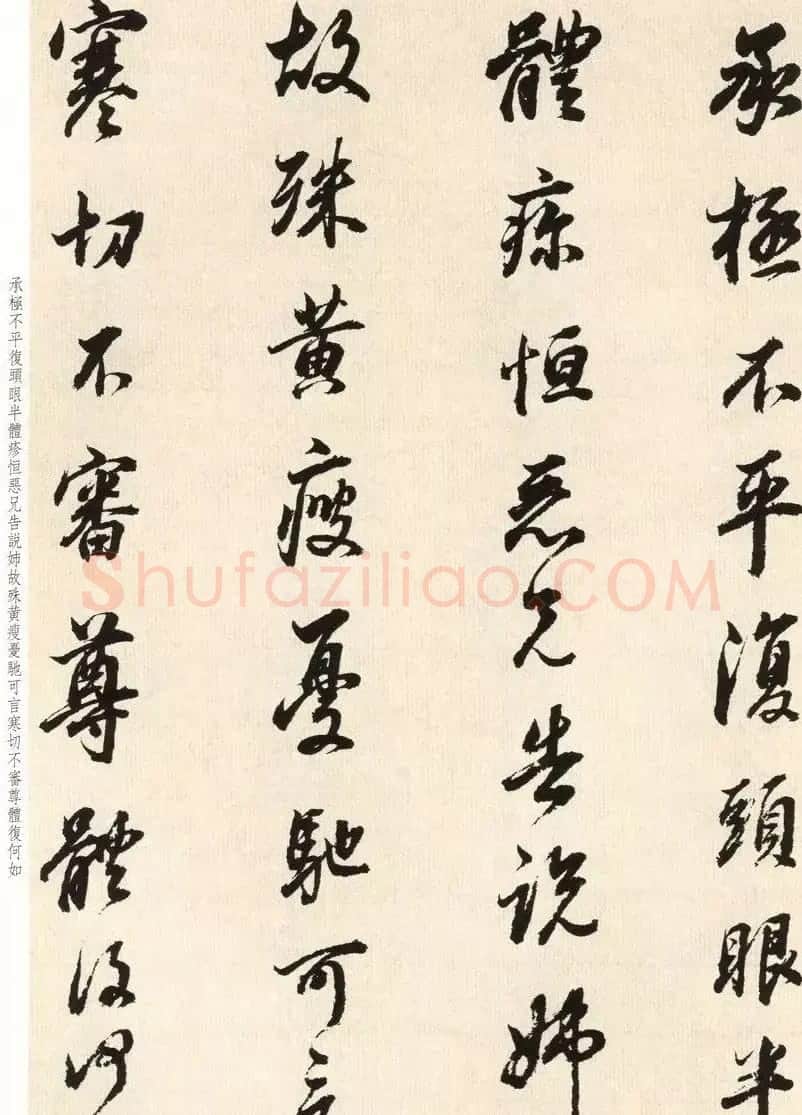 承極不平復頭眼半
體疹恒惡兄告說姊
故殊黃瘦憂馳可言
寒切不審尊體復何
承極不平復頭眼半體疹恒惡兄告說姊故殊黃瘦憂馳可言寒切不審尊體復何如
Shufaziliao.COM